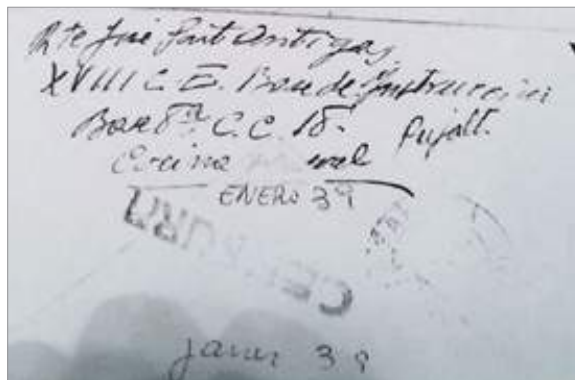 Rte José Prat Antigas
XVIII C.E. Bon de Instrucción
Base 8ª C.C. 18. Pujalt.
Cocina
ENERO 39
CENSURA
Janer 39